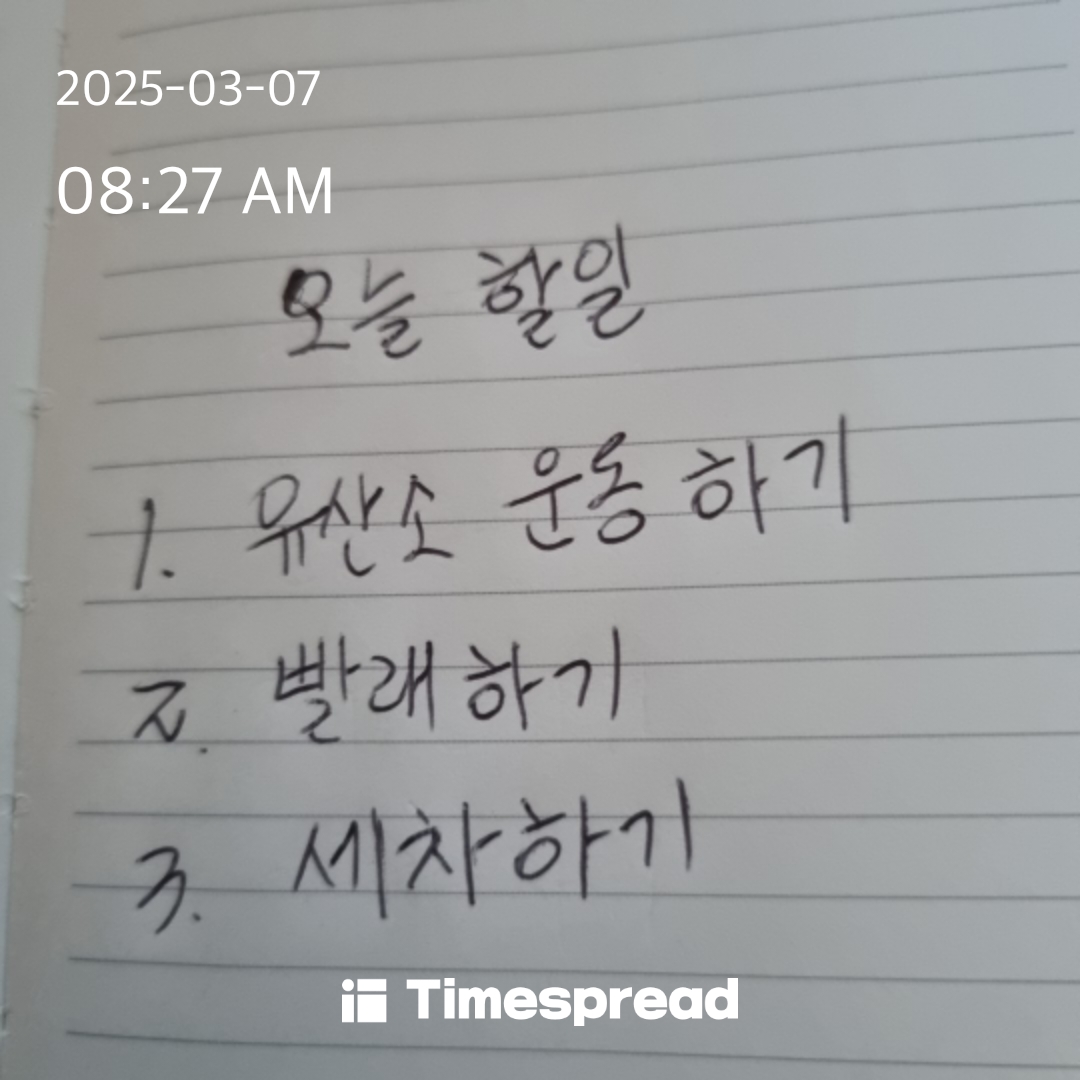 2025-03-07
08:27 AM
오늘 할일
1. 유산소 운동하기
2. 빨래하기
3. 세차하기
Timespread